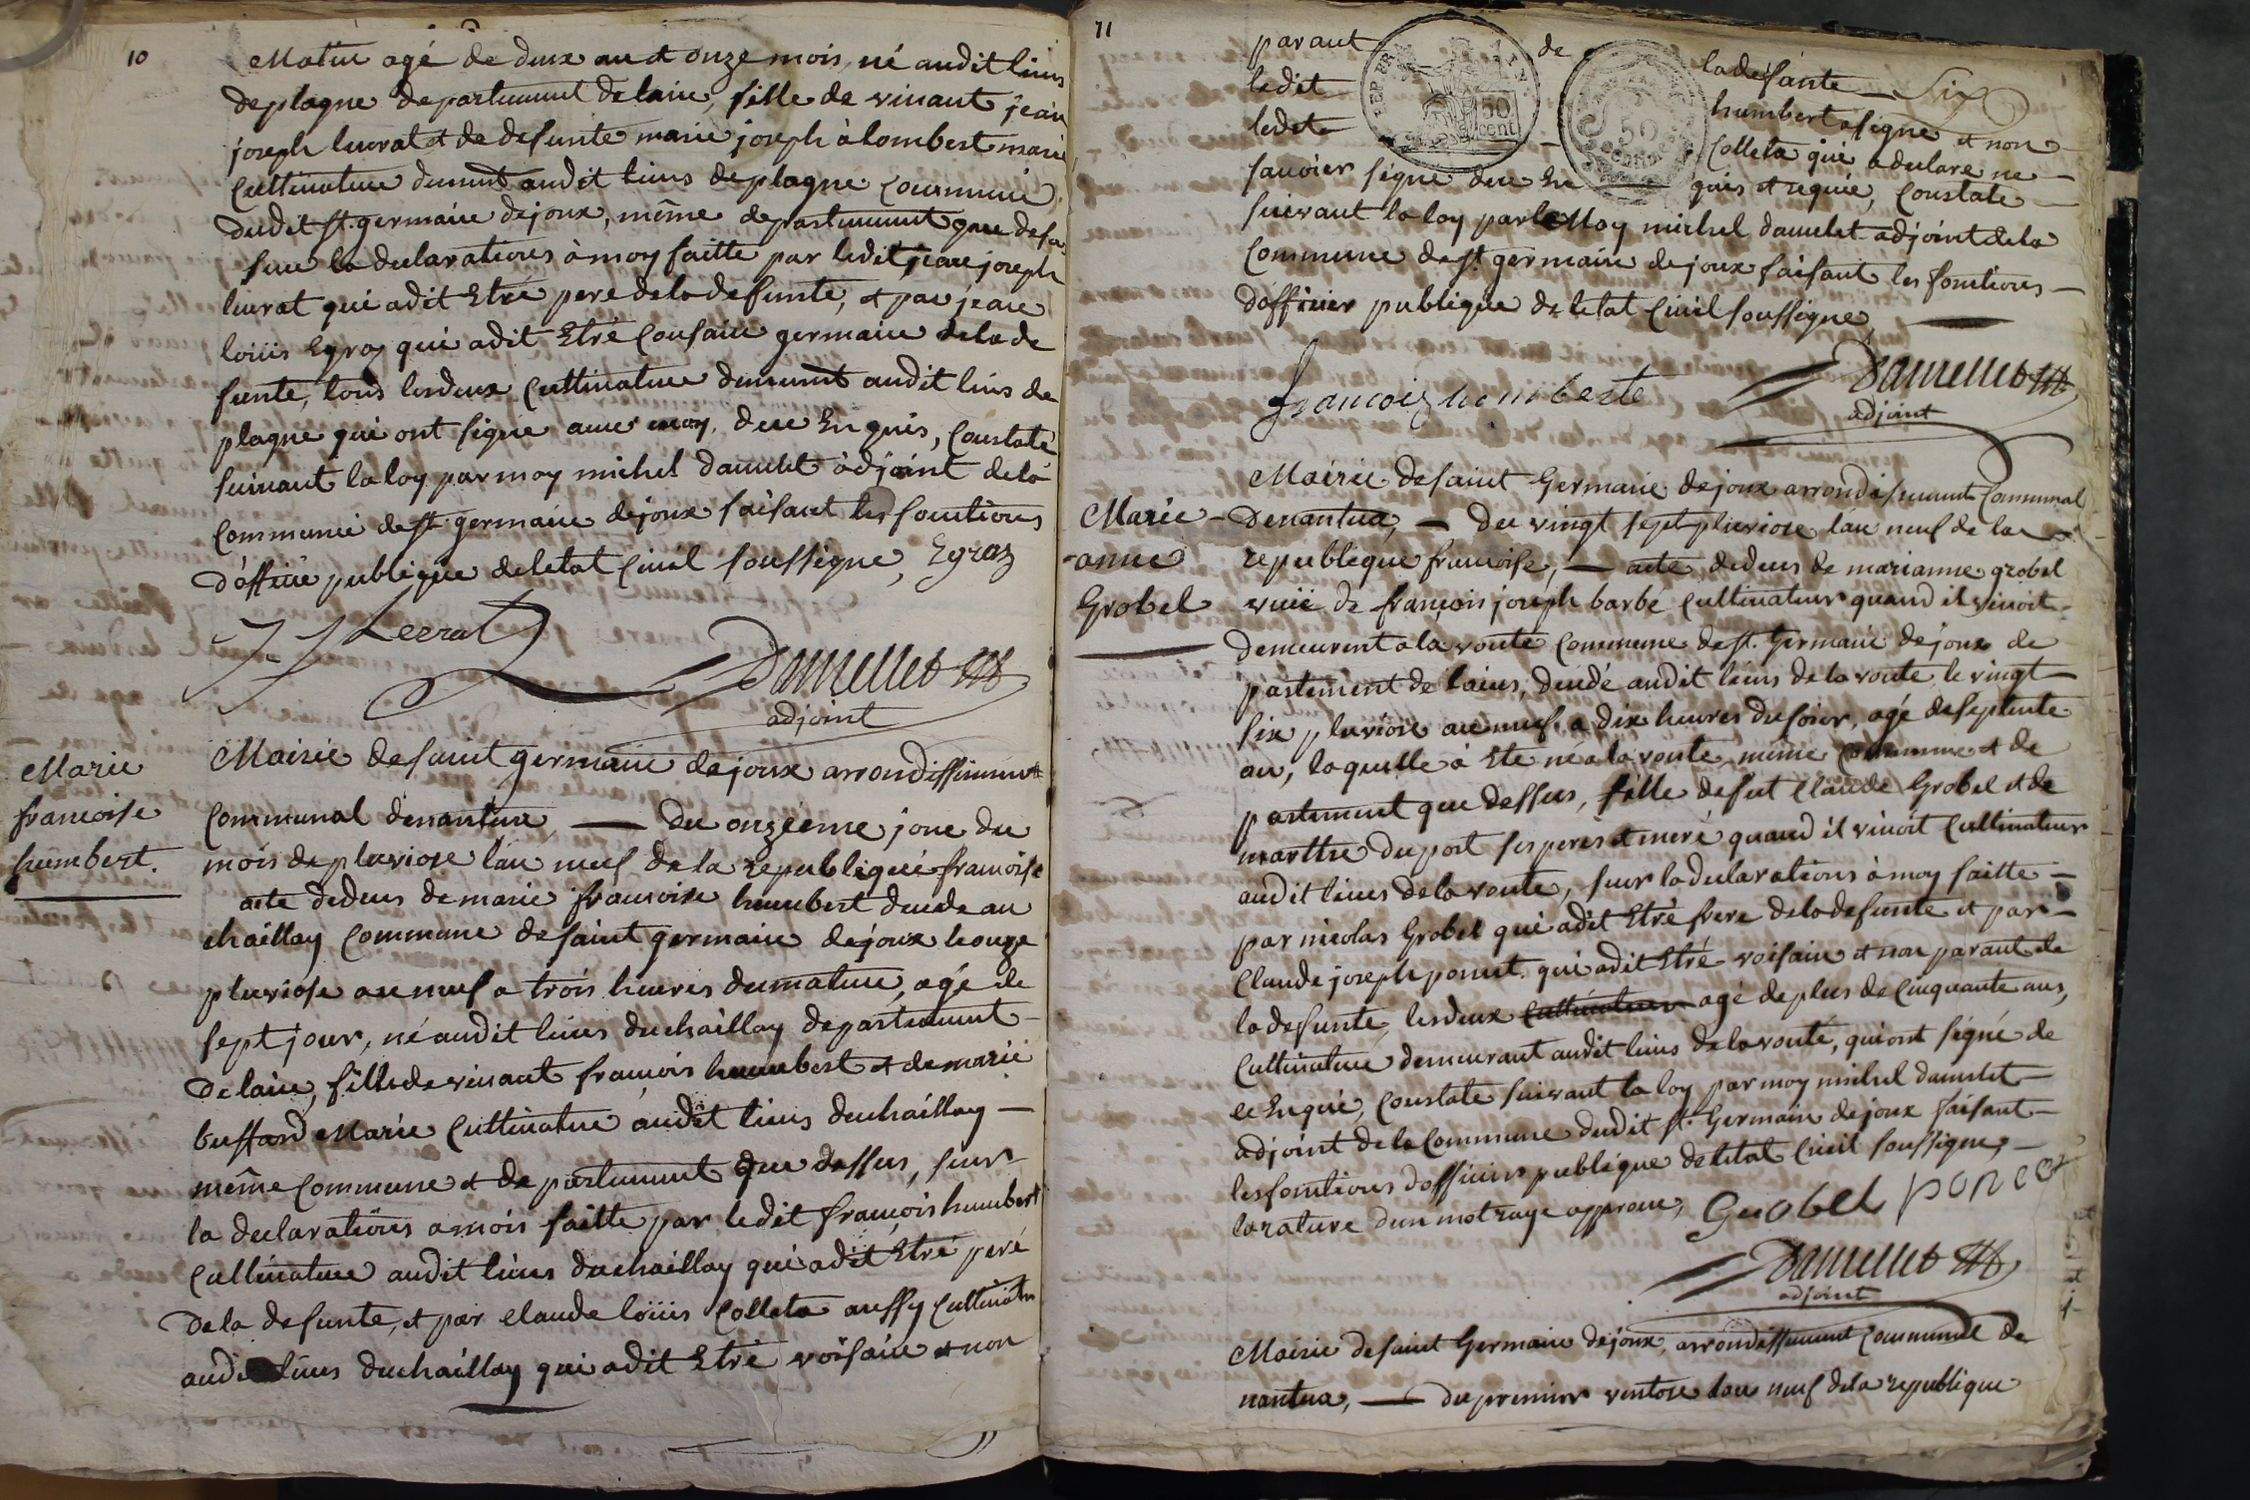 10
Matin agé de deux an et onze mois, né audit lieus
de plagne departement de lain, fille de vivant jean
joseph lievrat et de defunte marie joseph à lombert marié
Cultivateur demeurt audit lieus de plagne Commune
dudit st. germain dejoux, même departement que desu
sur la declarations à moy faitte par ledit jean joseph
lievrat qui adit Etré pere dela defunte, et par jean
loüis Egraz qui adit Etré Cousain germain dela de
funte, tous lesdeux Cultivateur demeurnt audit lieus de
plagne qui ont signe avec moy, de ce Enquis, Constaté
suivant la loy par moy michel damelet àdjoint dela
Commune de st. germain dejoux faisant les fonctions
d'officié publique deletat Civil soussigne, Egraz
J J Levrat
Damellet
adjoint
Marie
francoise
humbert.
Mairie de saint germain dejoux arrondissement
Communal denantua, — du onzéeme jour du
mois de pluviose lan neuf de la Republique francoise
acte dedeus de marie francoise humbert decede au
chaillay Commune de saint germain dejoux leonze
pluviose an neuf a trois heures dumatin, agé de
sept jour, né audit lieus duchaillay departement
de lain, fille de vivant francois humbert et de marie
buffard Marié Cultivateur audit lieus duchaillay —
même Commune et departement que dessus, sur
la declarations a mois faitte par ledit francois humbert
Cultivateur audit lieus duchaillay qui adit Etré peré
de la defunte, et par claude loüis Colleta aussy Cultivatr
audit lieus duchaillay qui adit Etré voisain et non
11
parant de la defunte — Six
ledit humbert a signe et non
ledit Colleta qui a declare ne —
sauvoier signe de ce En quis et requie, Constate
suivant la loy par le Moy michel damelet adjoint dela
Commune de st. germain dejoux faisant les fonctions —
dofficier publique de letat Civil soussigne, —
REP FRA
50
cent
50
centimes
francois humberte
Damellet
adjoint
Marie
anne
Grobel
Mairie de saint Germain dejoux arrondissement Communal
denantua, — du vingt sept pluviose lan neuf de la
republique francoise, — acte dedeus de marianne grobel
veuë de françois joseph barbé Cultivateur quand il vivoit
demeurent a la voute Commune de st. Germain dejoux de
partement de lains, décédé audit lieus de la voute le vingt
six pluviose an neuf a dix heures du soier, agé de septente
an, laquelle à Ete né a la voute, mème Commune et de
partement que dessus, fille de fut Claude Grobel et de
marthe duport ses peres et meré quand il vivoit Cultivateur
audit lieus de la voute, sur la declarations à moy faitte —
par nicolas Grobel qui adit Etré frere dela defunte et par —
Claude joseph ponset qui adit Etré voisain et non parant de
la defunte, les deux Cultivateur agé de plus de Cinquante ans,
Cultivateur demeurant audit lieus de la vouté, qui ont signé de
ce Enquié, Constate suivant la loy par moy michel damelet —
adjoint de la Commune dudit st. Germain dejoux faisant
les fonctions dofficiers publique deletat Civil soussigne, —
larature dun mot raye approuve, Grobel poncet
Damellet
adjoint
Mairie de saint Germain dejoux, arrondissement Communal de
nantua, — du premier ventose lan neuf dela republique